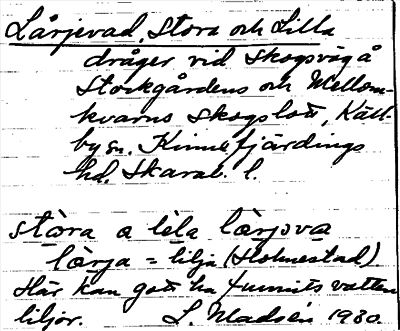 Lärjevad, Stora och Lilla
dråger vid skogsväg å
Storkgårdens och Mellom-
kvarns skogslott, Käll-
by sn. Kinnefjärdings
hd. Skarab. l.
stora a lela lærjova
lærja = lilja (Holmestad).
Här kan gott ha funnits vatten
liljor. L. Madsén 1930.